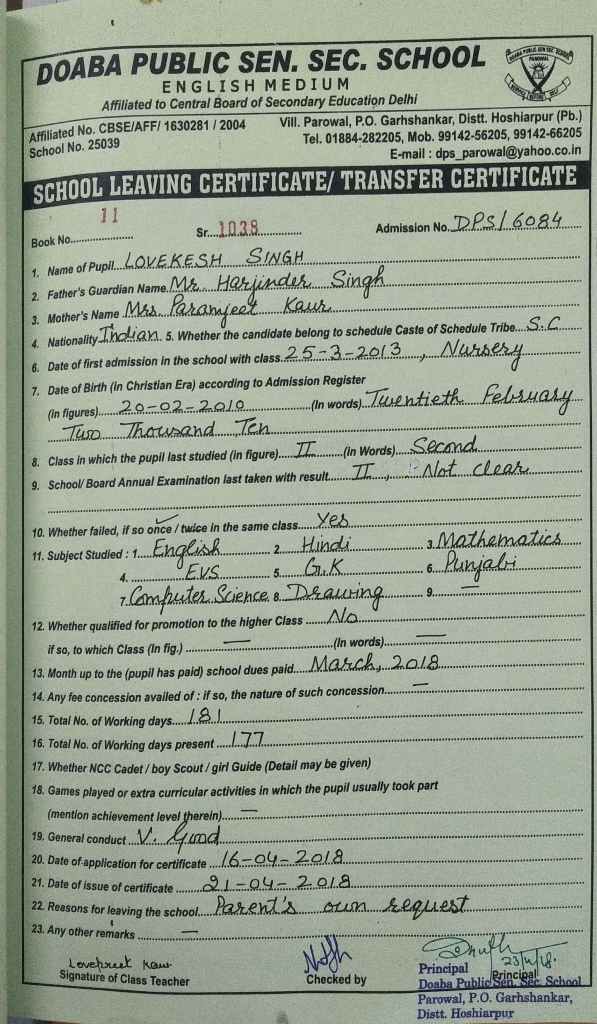 DOABA PUBLIC SEN. SEC. SCHOOL
ENGLISH MEDIUM
Affiliated to Central Board of Secondary Education Delhi
Affiliated No. CBSE/AFF/ 1630281 / 2004 Vill. Parowal, P.O. Garhshankar, Distt. Hoshiarpur (Pb.)
School No. 25039 Tel. 01884-282205, Mob. 99142-56205, 99142-66205
E-mail : dps_parowal@yahoo.co.in
SCHOOL LEAVING CERTIFICATE/ TRANSFER CERTIFICATE
Book No. 11 Sr. 1038 Admission No. DPS/6084
1. Name of Pupil LOVEKESH SINGH
2. Father's Guardian Name Mr. Harjinder Singh
3. Mother's Name Mrs Paramjeet Kaur
4. Nationality Indian 5. Whether the candidate belong to schedule Caste of Schedule Tribe S.C
6. Date of first admission in the school with class 25-3-2013, Nursery
7. Date of Birth (in Christian Era) according to Admission Register
(in figures) 20-02-2010 (In words) Twentieth February
Two Thousand Ten
8. Class in which the pupil last studied (in figure) II (in Words) Second
9. School/ Board Annual Examination last taken with result II, Not clear
10. Whether failed, if so once / twice in the same class Yes
11. Subject Studied : 1. English 2. Hindi 3. Mathematics
4. EVS 5. G.K 6. Punjabi
7. Computer Science 8. Drawing 9. —
12. Whether qualified for promotion to the higher Class No
if so, to which Class (In fig.) — (In words) —
13. Month up to the (pupil has paid) school dues paid March, 2018
14. Any fee concession availed of : if so, the nature of such concession —
15. Total No. of Working days 181
16. Total No. of Working days present 177
17. Whether NCC Cadet / boy Scout / girl Guide (Detail may be given)
18. Games played or extra curricular activities in which the pupil usually took part
(mention achievement level therein) —
19. General conduct V. Good
20. Date of application for certificate 16-04-2018
21. Date of issue of certificate 21-04-2018
22. Reasons for leaving the school Parent's own request
23. Any other remarks —
Lovepreet Kaur 23/4/18.
Signature of Class Teacher Checked by Principal Principal
Doaba Public Sen. Sec. School
Parowal, P.O. Garhshankar,
Distt. Hoshiarpur